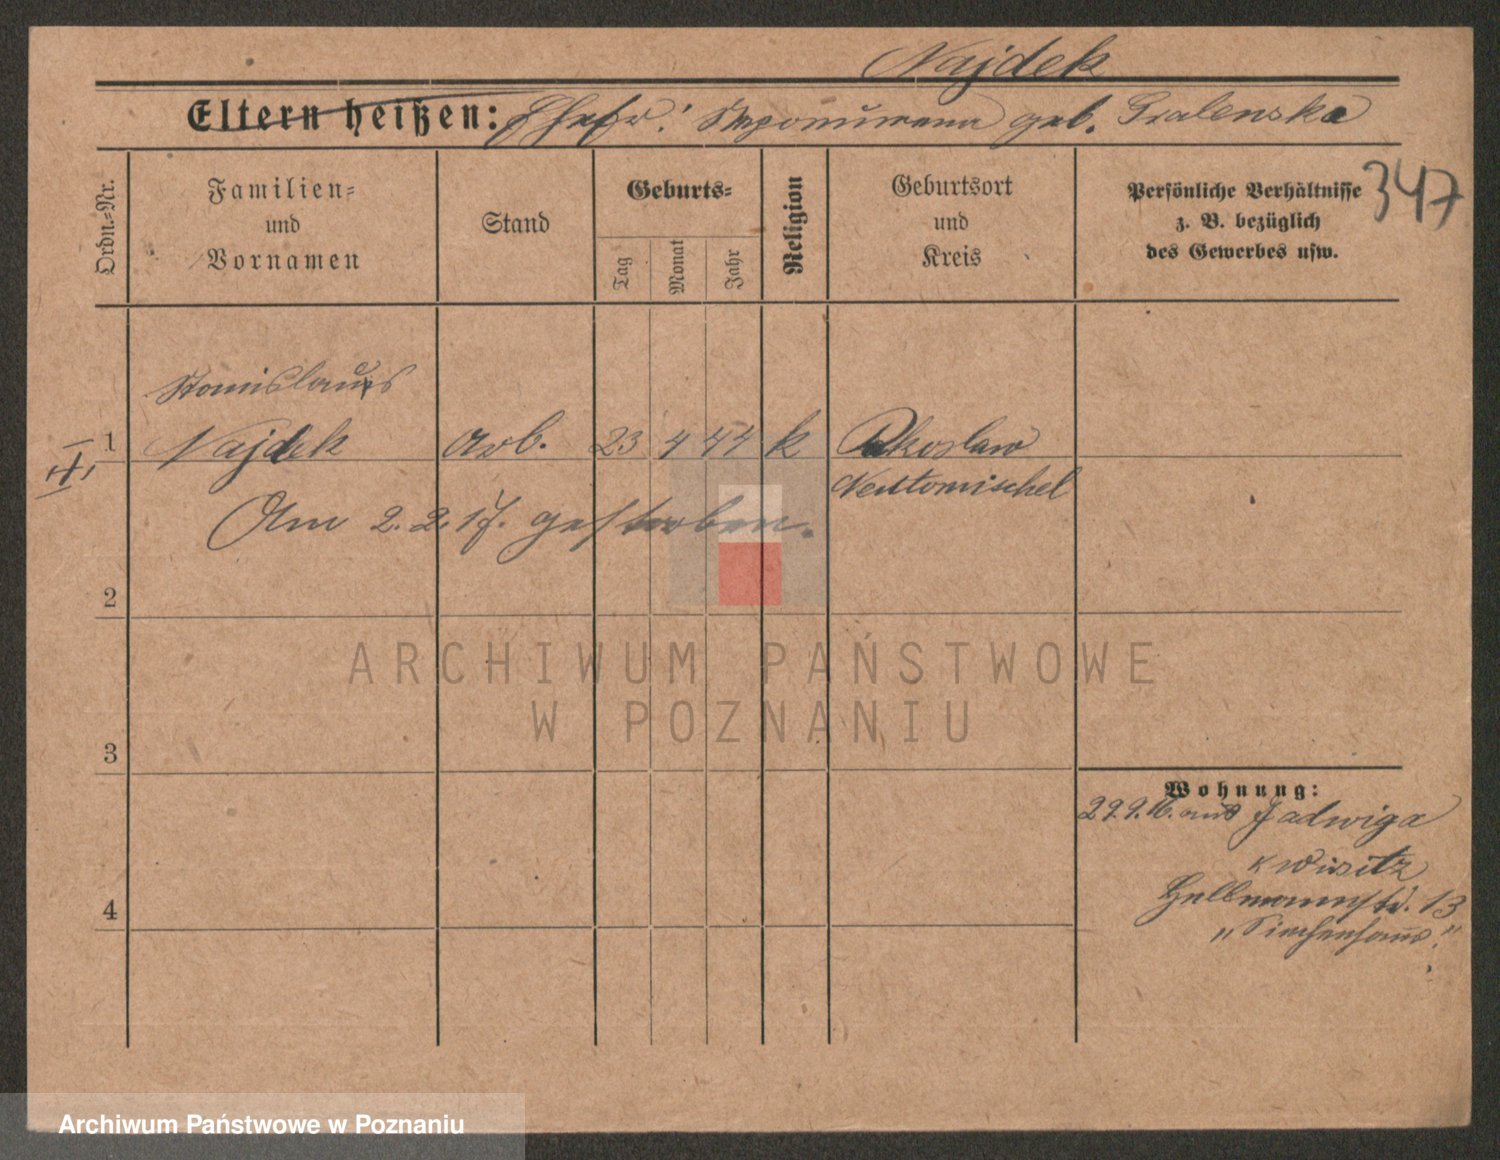 Najdek
Eltern heißen: Ehefr: Nepomucena geb. Gralenska
347
Ordn.=Nr.
Familien=
und
Vornamen
Stand
Geburts=
Tag
Monat
Jahr
Religion
Geburtsort
und
Kreis
Persönliche Verhältnisse
z. B. bezüglich
des Gewerbes usw.
Stanislaus
1 Najdek Arb. 23 4 44 k
Neutomischel
Am 2. 2. 17. gestorben.
2
3
4
Wohnung:
29.9.16. aus Jadwiga
Hellmannstr. 13
"Siechenhaus"
ARCHIWUM PAŃSTWOWE
W POZNANIU
Archiwum Państwowe w Poznaniu